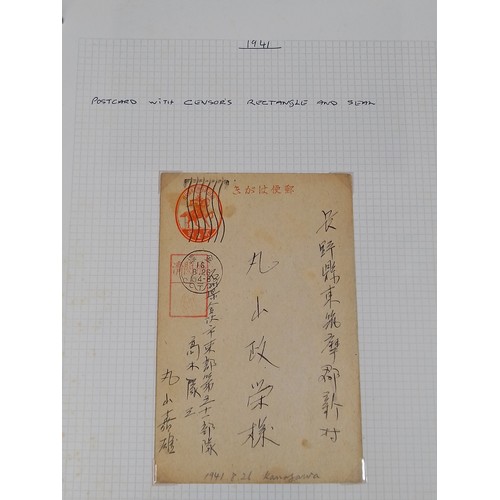 1941
POSTCARD WITH CENSOR'S RECTANGLE AND SEAL
郵便はがき
長野縣東筑摩郡新村
丸山政栄様
金沢市東部第五十部隊
高木隊
丸山嘉雄
16
8.26
1941 8.26 Kanazawa